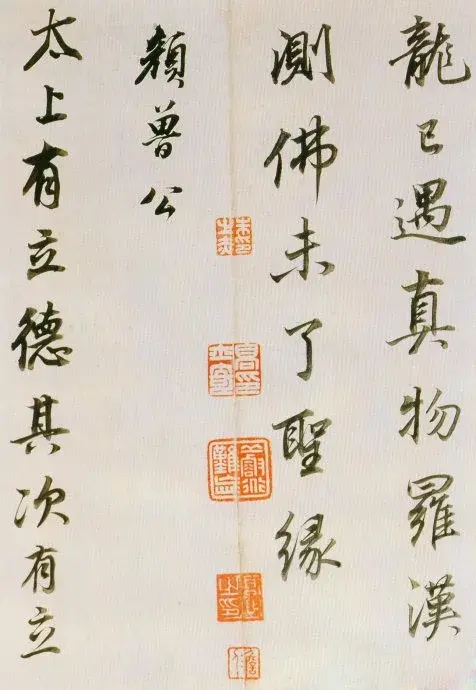 龍已遇真物羅漢
測佛未了聖緣
顏魯公
太上有立德其次有立